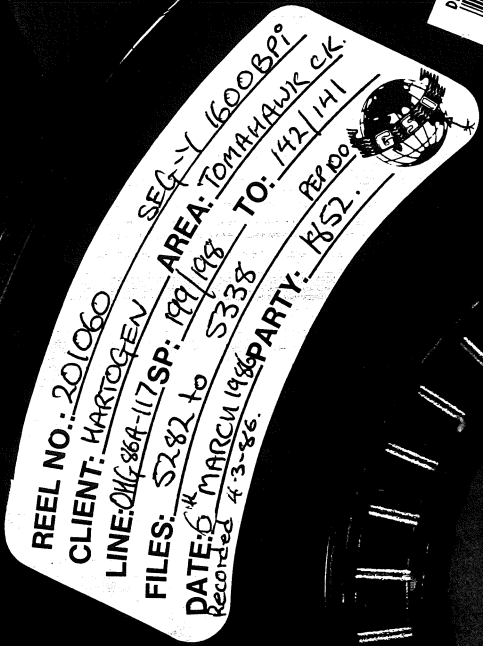 REEL NO.: 201060 SEG-Y 1600BPi
CLIENT: HARTOGEN AREA: TOMAHAWK CK.
LINE: OHG86A-117 SP: 199/198 TO: 142/141
FILES: 5282 to 5338 PEP 100
DATE: 6th MARCH 1986 PARTY: 1852.
Recorded 4-3-86.
GSI